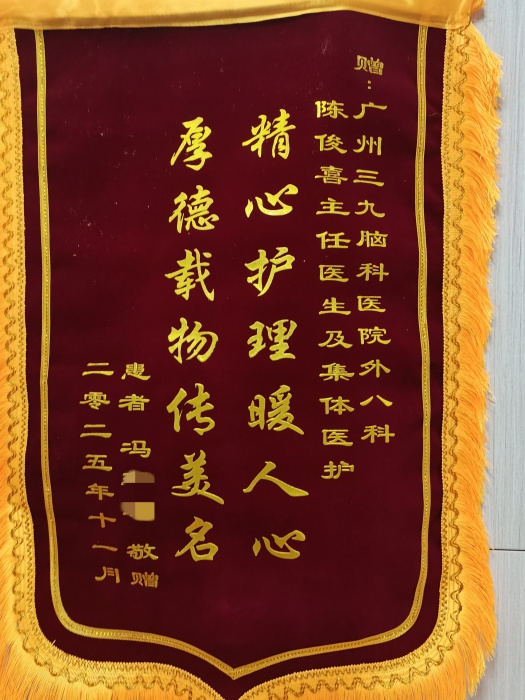 赠：广州三九脑科医院外八科
陈俊喜主任医生及集体医护
精心护理暖人心
厚德载物传美名
患者 冯 敬赠
二零二五年十一月